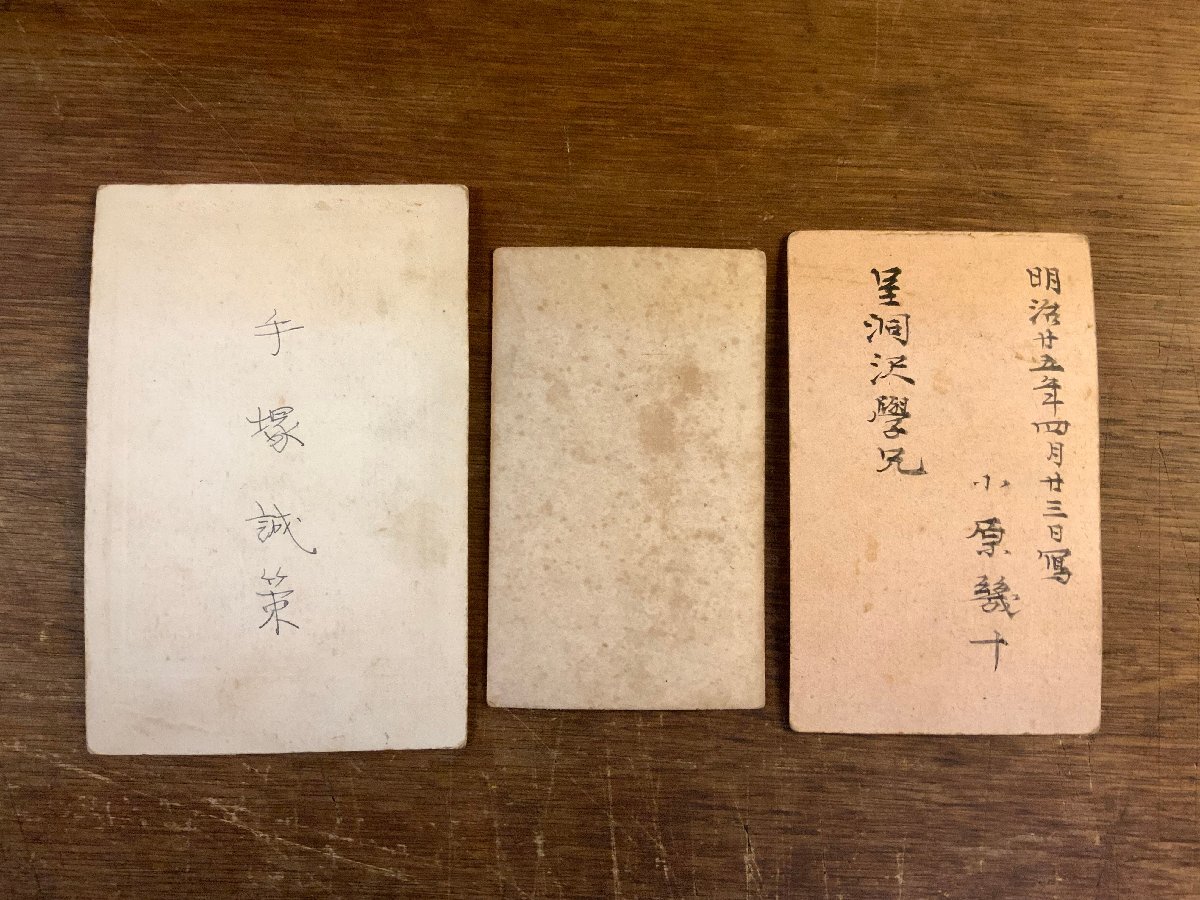 手塚誠策
明治廿五年四月廿三日寫
小原幾十
呈洞沢學兄